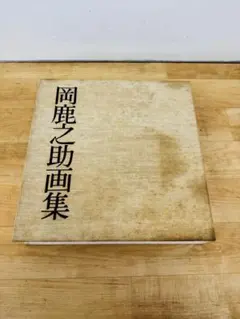 岡鹿之助画集